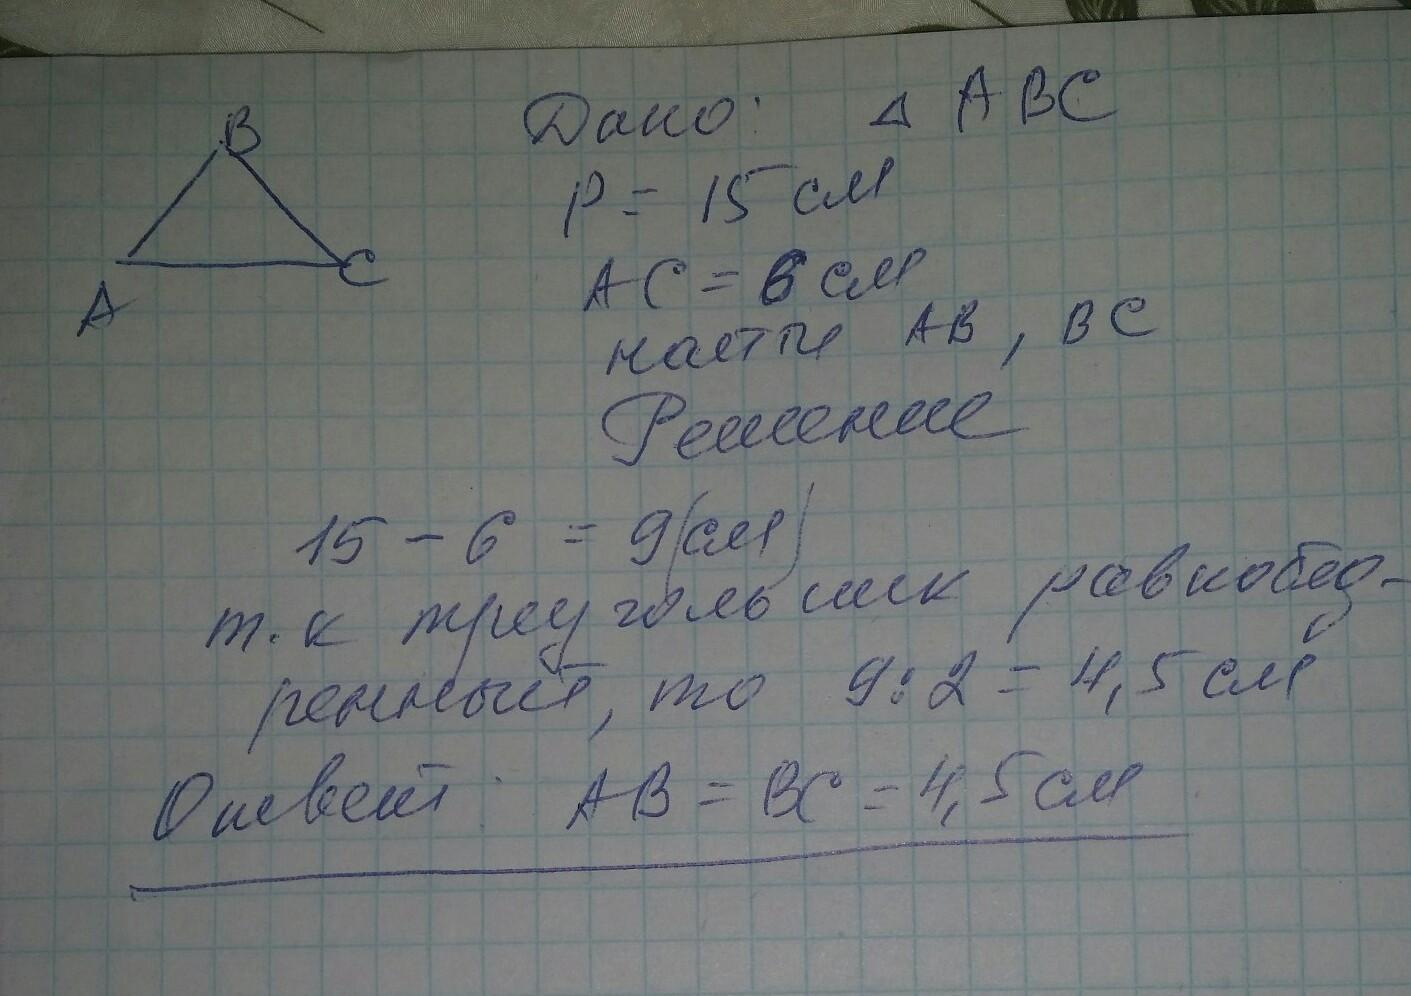 B
A
C
Дано: △ ABC
P = 15 см
AC = 6 см
найти AB, BC
Решение
15 - 6 = 9(см)
т.к треугольник равнобед-
ренный, то 9:2 = 4,5 см
Ответ: AB = BC = 4,5 см